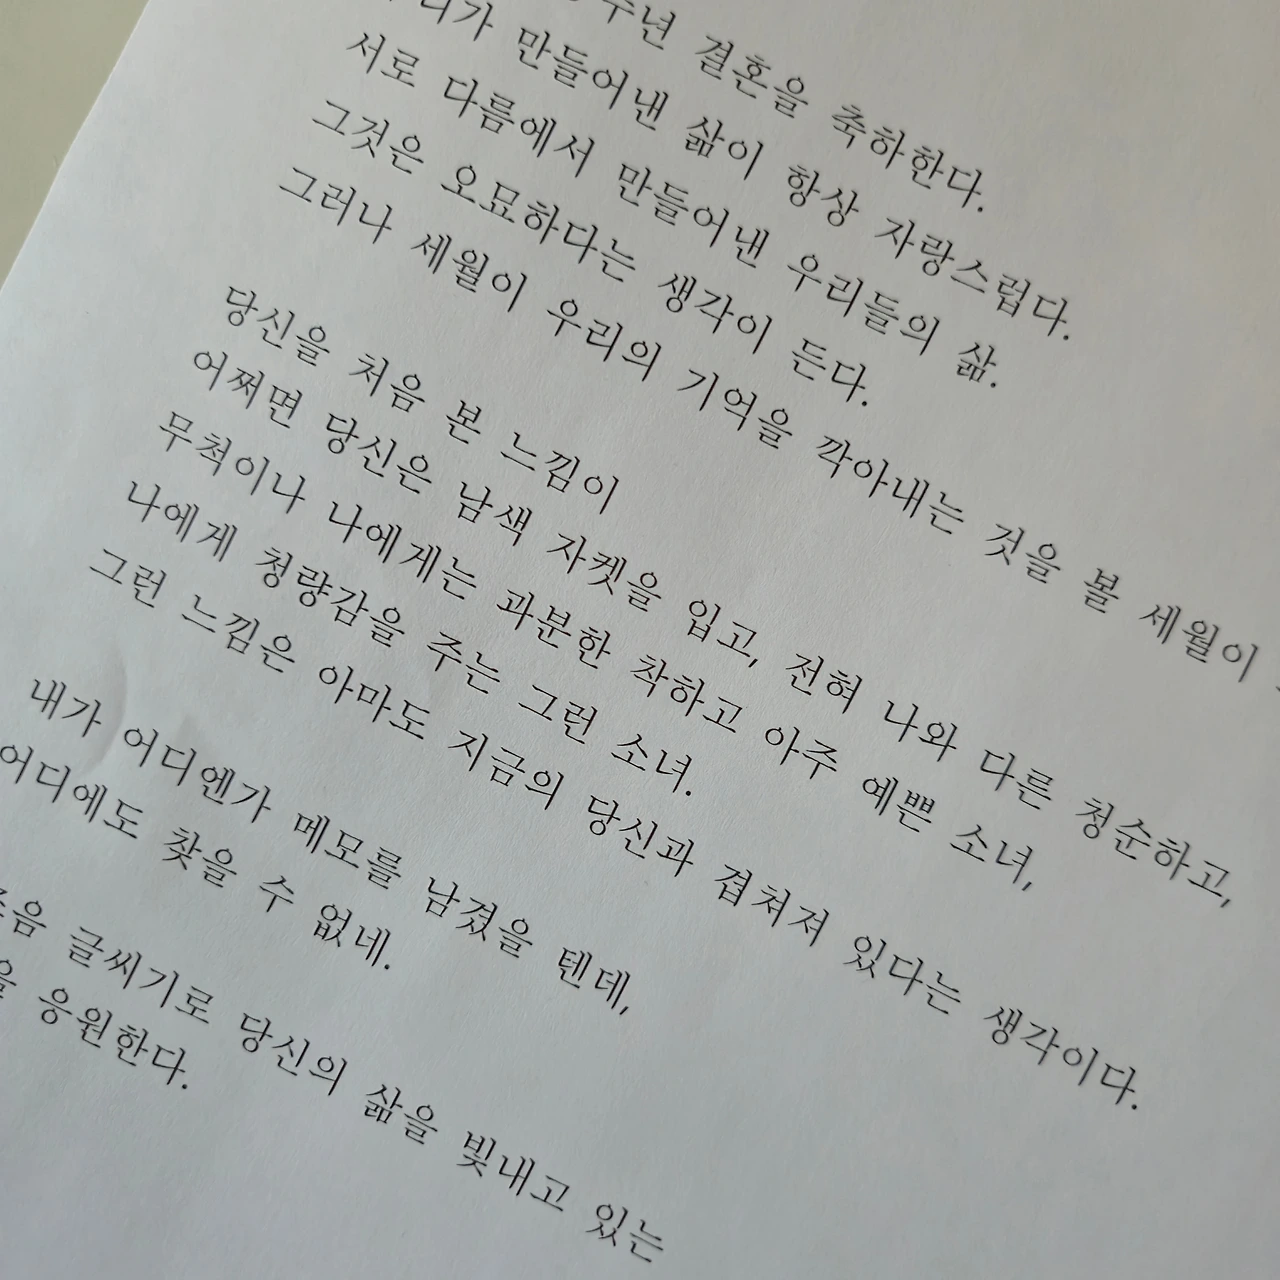 결혼을 축하한다.
만들어낸 삶이 항상 자랑스럽다.
서로 다름에서 만들어낸 우리들의 삶.
그것은 오묘하다는 생각이 든다.
그러나 세월이 우리의 기억을 깍아내는 것을 볼 세월이
당신을 처음 본 느낌이
어쩌면 당신은 남색 자켓을 입고, 전혀 나와 다른 청순하고,
무척이나 나에게는 과분한 착하고 아주 예쁜 소녀,
나에게 청량감을 주는 그런 소녀.
그런 느낌은 아마도 지금의 당신과 겹쳐져 있다는 생각이다.
내가 어디엔가 메모를 남겼을 텐데,
어디에도 찾을 수 없네.
글씨기로 당신의 삶을 빛내고 있는
응원한다.